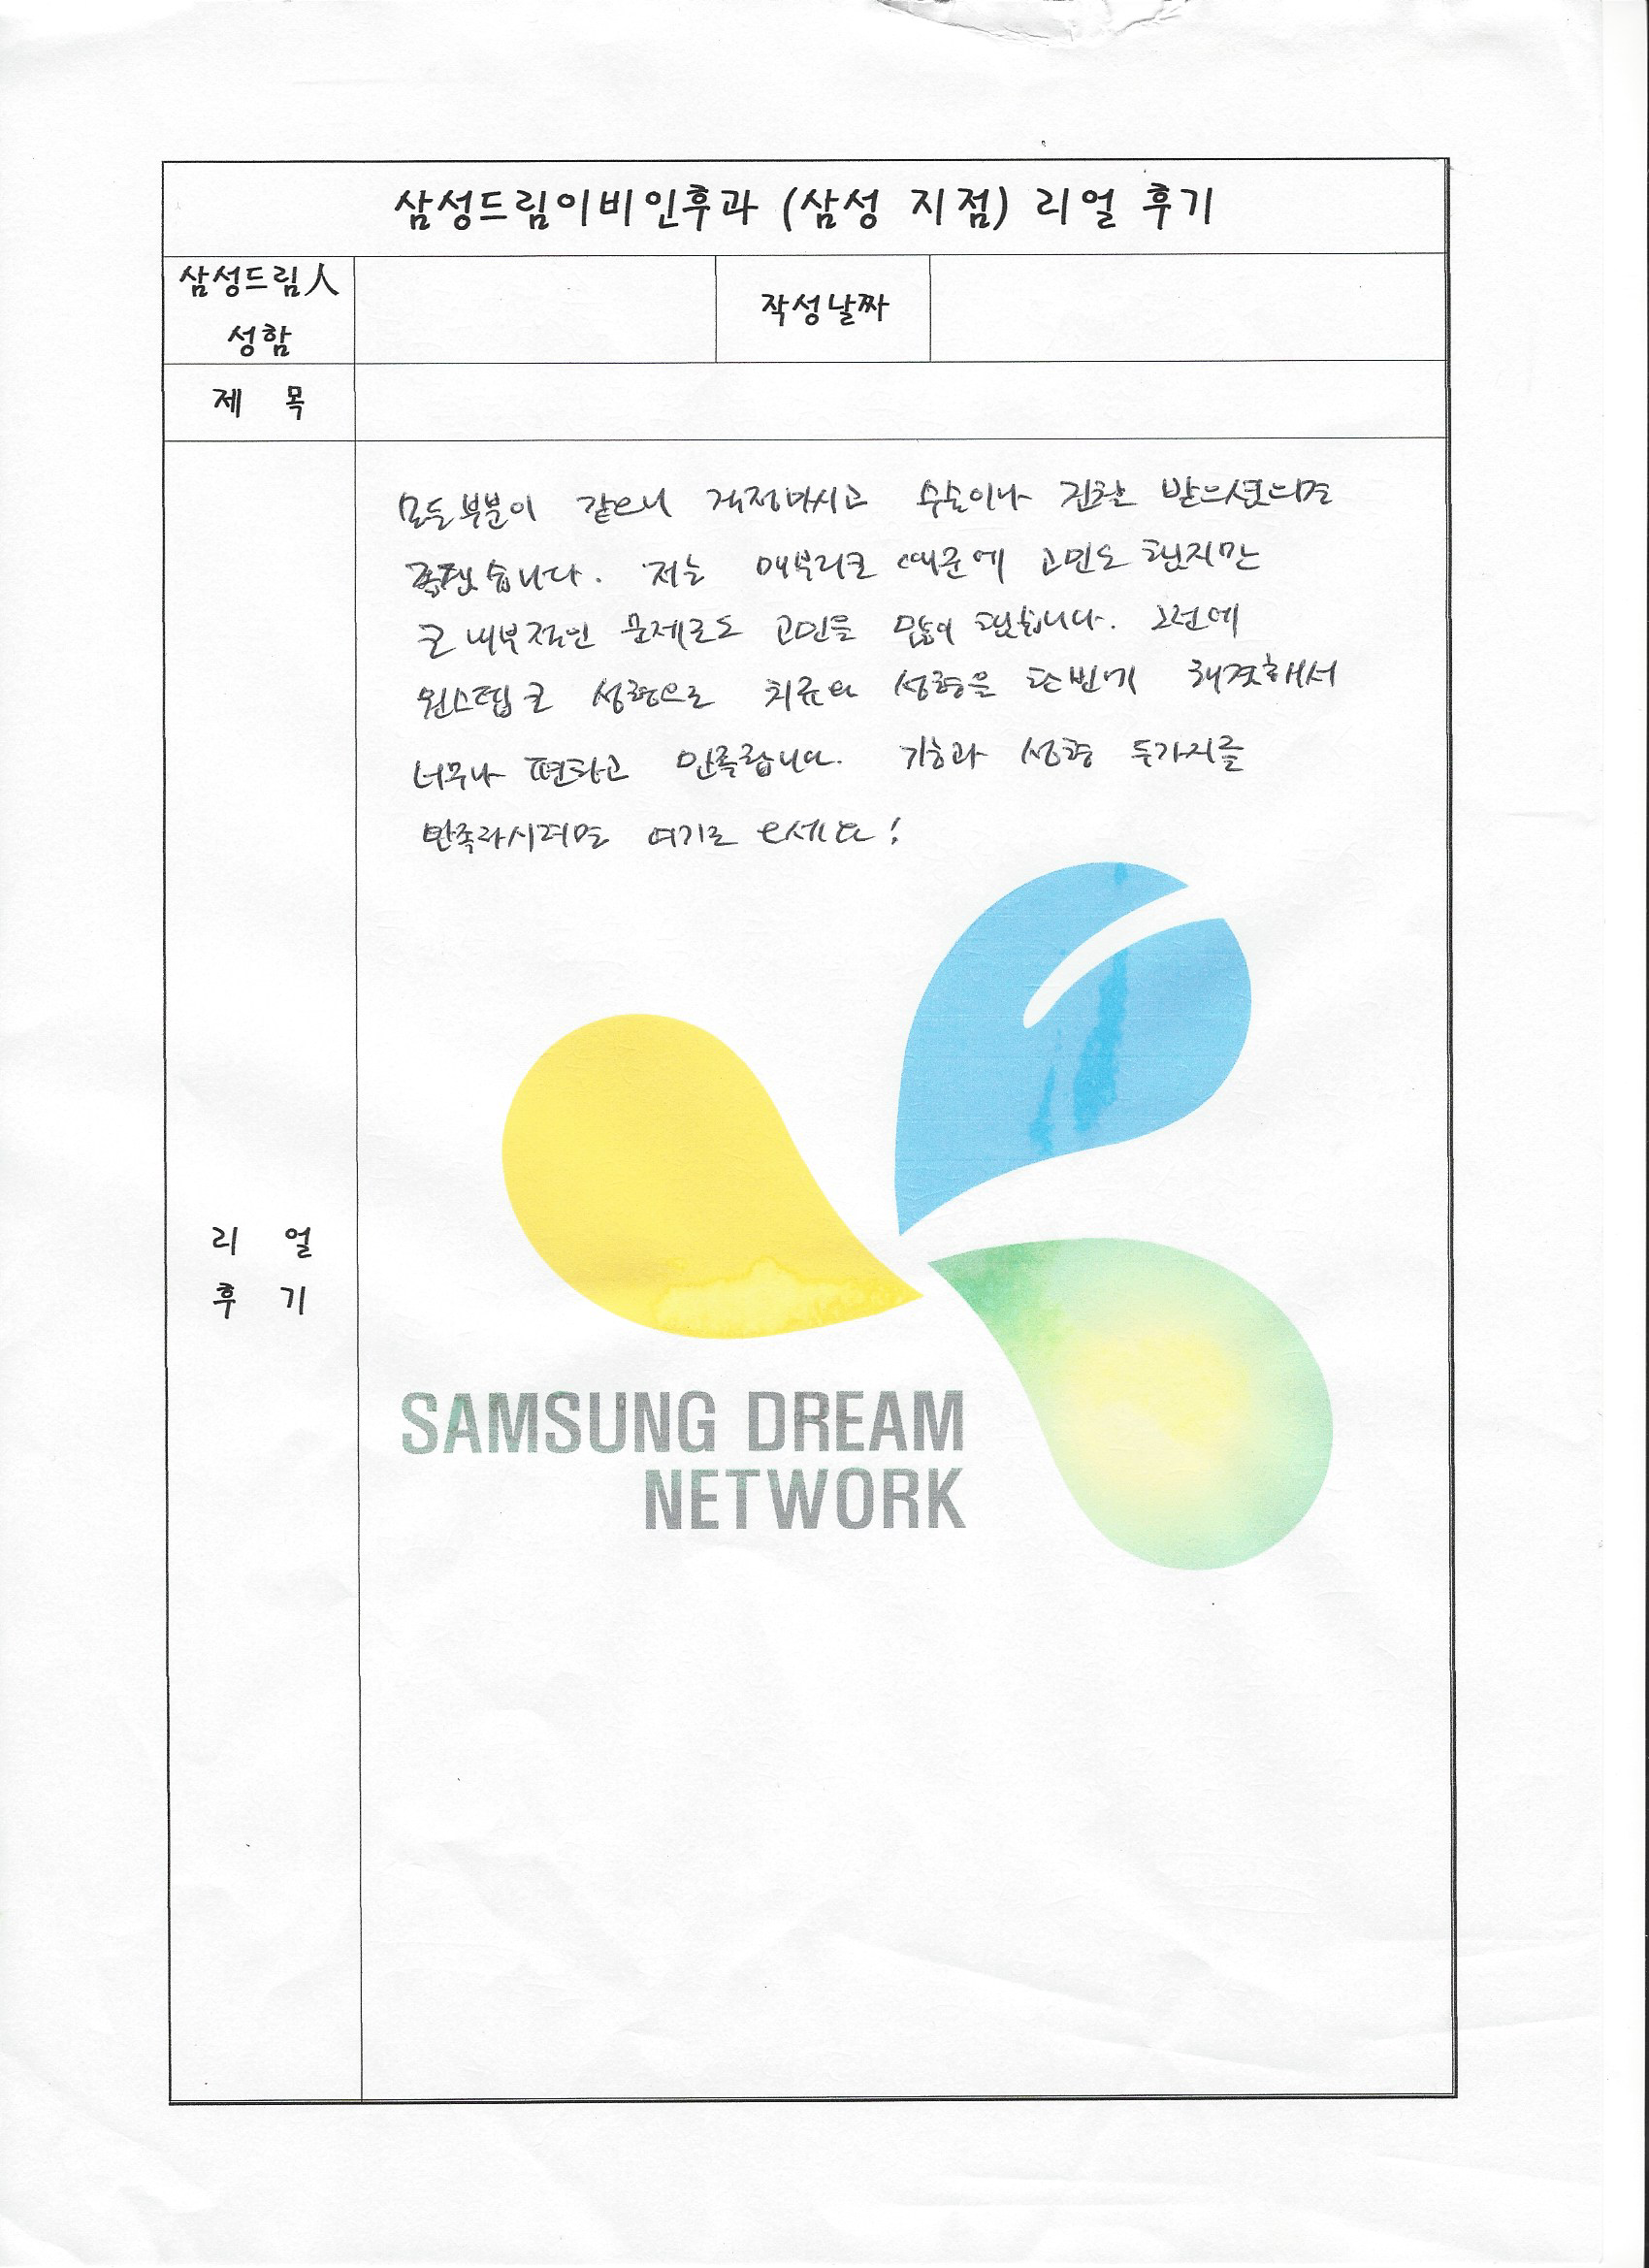 삼성드림이비인후과 (삼성 지점) 리얼 후기
삼성드림人
성함
작성날짜
제 목
모든부분이 같으니 걱정마시고 수술이나 진찰 받으셨으면
좋겠습니다. 저는 매부리코 때문에 고민도 했지만
코 내부적인 문제로도 고민을 많이 했습니다. 그런데
원스텝 코 성형으로 치료와 성형을 한번에 해결해서
너무나 편하고 만족합니다. 기능과 성형 두가지를
만족하시려면 여기로 오세요!
리 얼
후 기
SAMSUNG DREAM
NETWORK